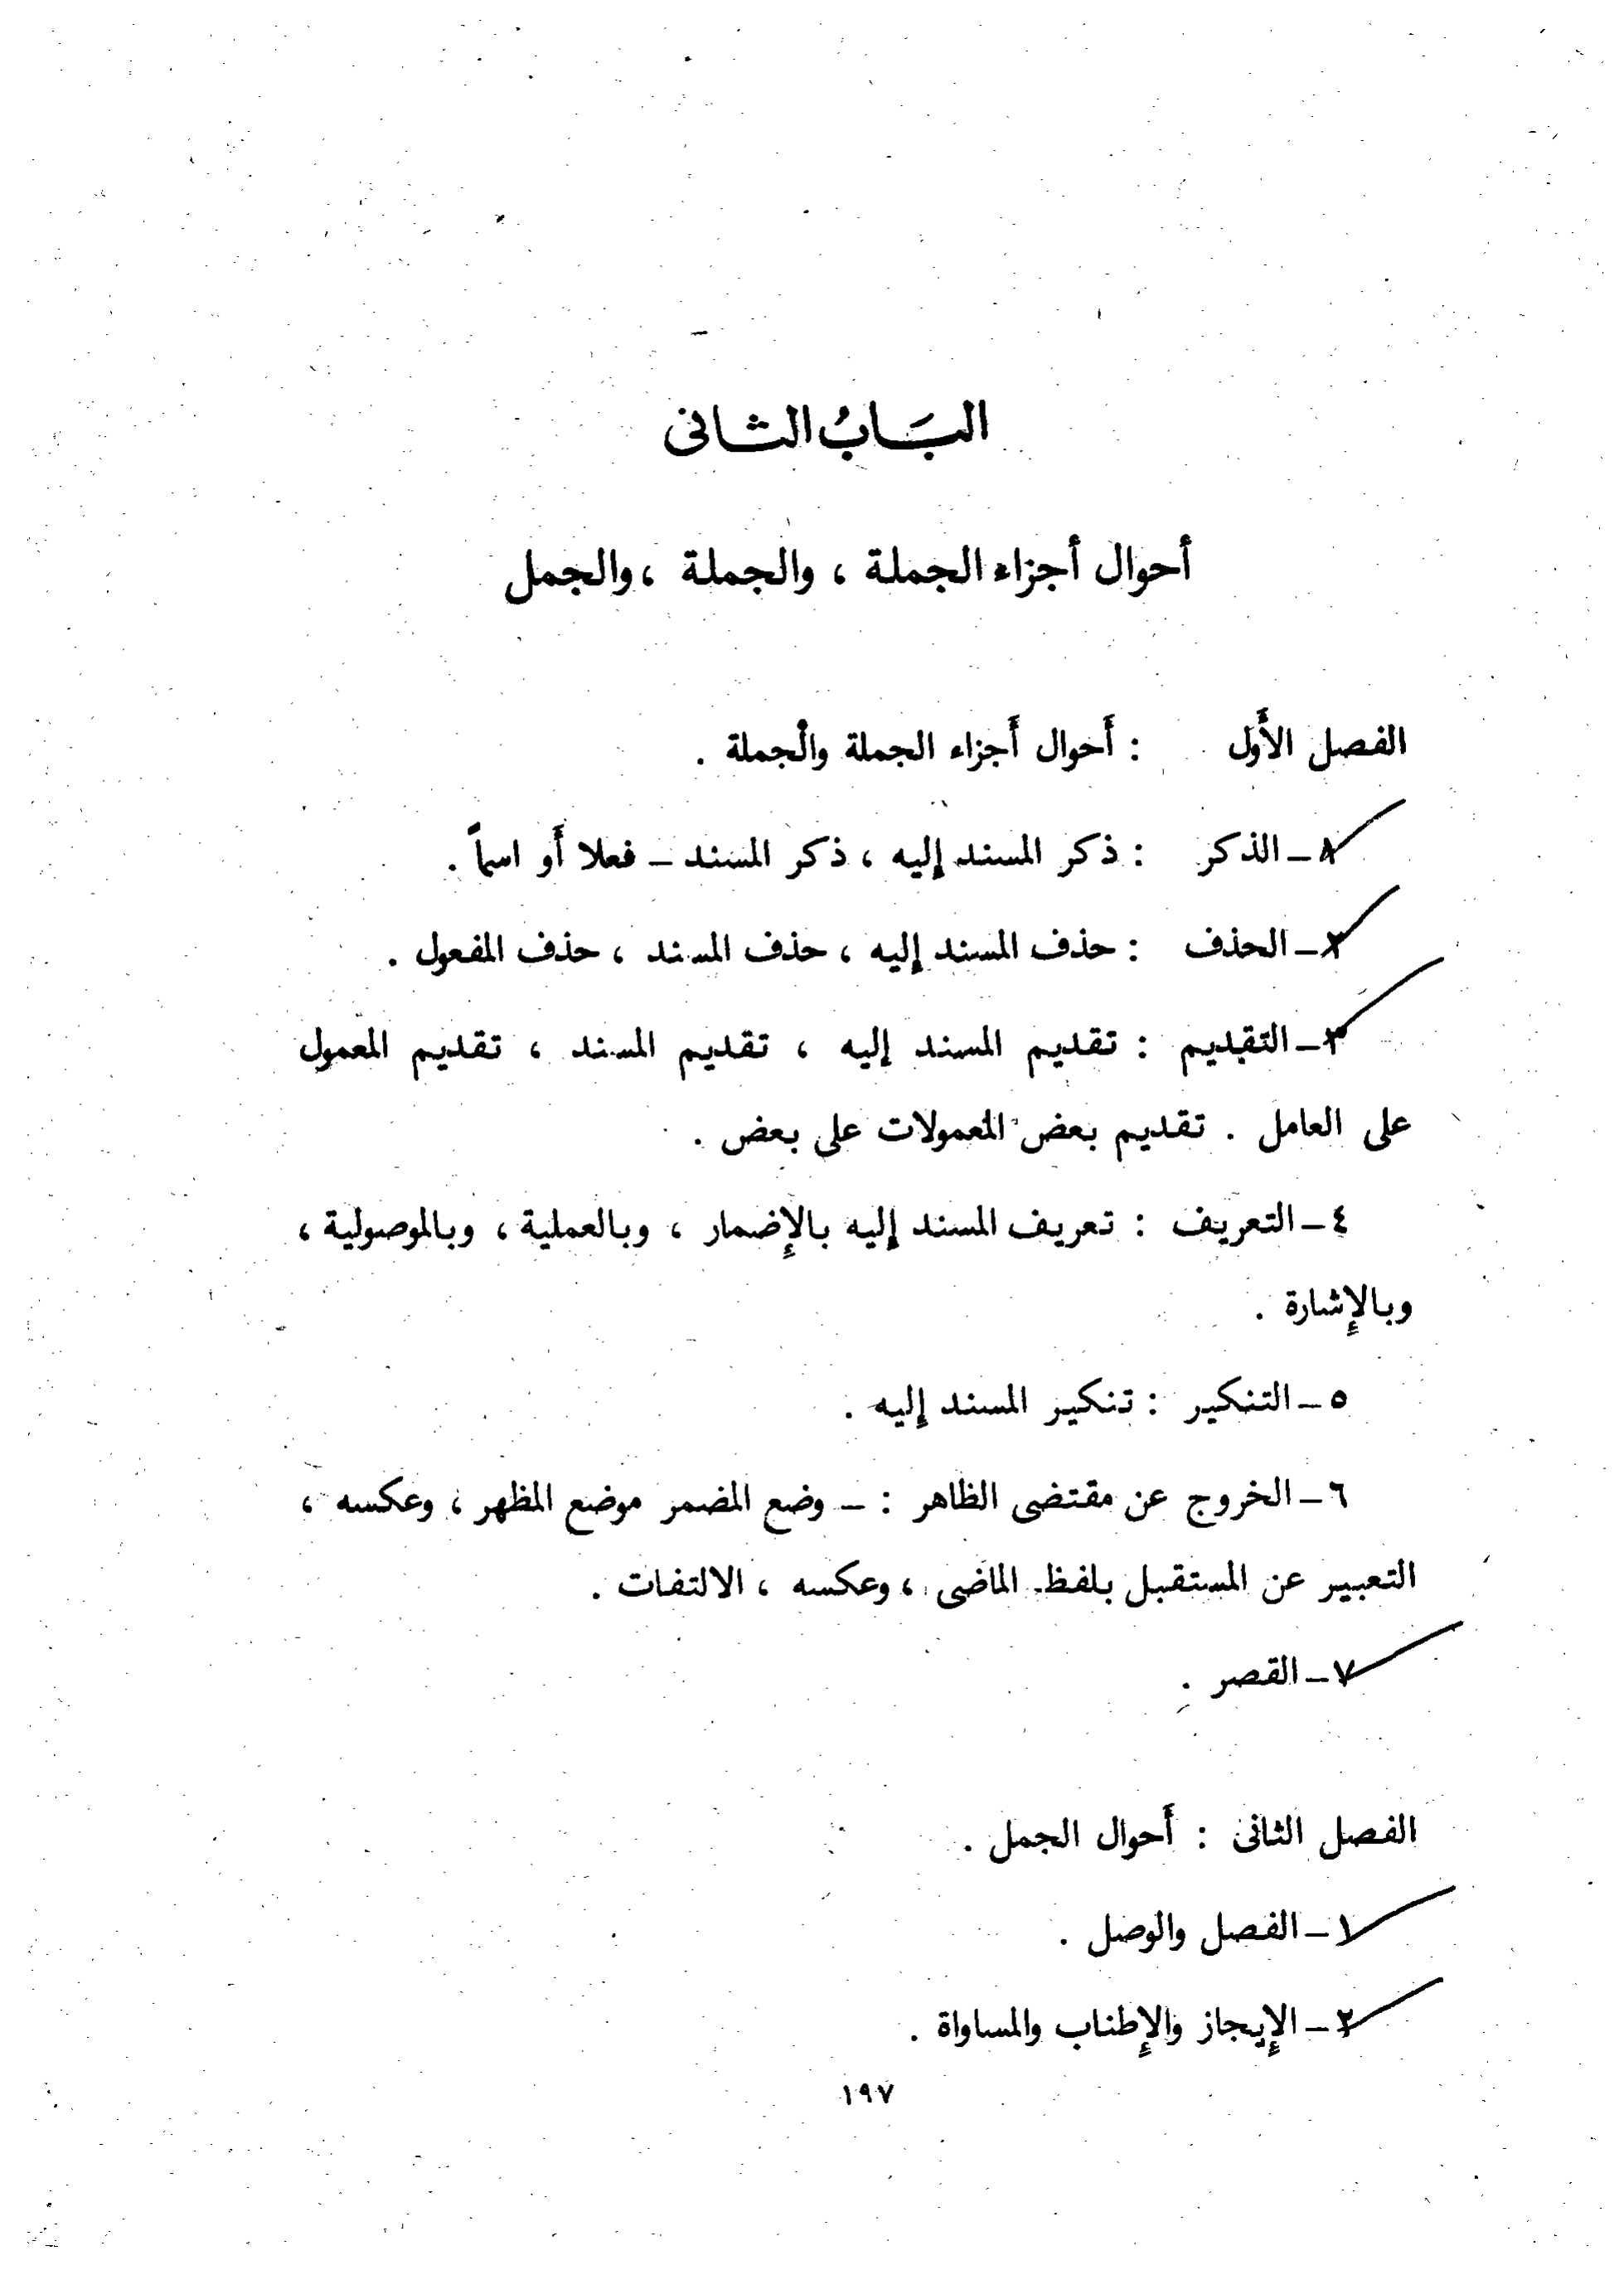 البَابُ الثانى
أحوال أجزاء الجملة ، والجملة ، والجمل
الفصل الأَول : أَحوال أَجزاء الجملة والْجملة .
١ - الذكر : ذكر المسند إليه ، ذكر المسند - فعلا أَو اسماً .
٢ - الحذف : حذف المسند إليه ، حذف المسند ، حذف المفعول .
٣ - التقديم : تقديم المسند إليه ، تقديم المسند ، تقديم المعمول
على العامل . تقديم بعض المعمولات على بعض .
٤ - التعريف : تعريف المسند إليه بالإِضمار ، وبالعملية ، وبالموصولية ،
وبالإِشارة .
٥ - التنكير : تنكير المسند إليه .
٦ - الخروج عن مقتضى الظاهر : - وضع المضمر موضع المظهر ، وعكسه ،
التعبير عن المستقبل بلفظ الماضى ، وعكسه ، الالتفات .
٧ - القصر .
الفصل الثانى : أَحوال الجمل .
١ - الفصل والوصل .
٢ - الإِيجاز والإِطناب والمساواة .
١٩٧